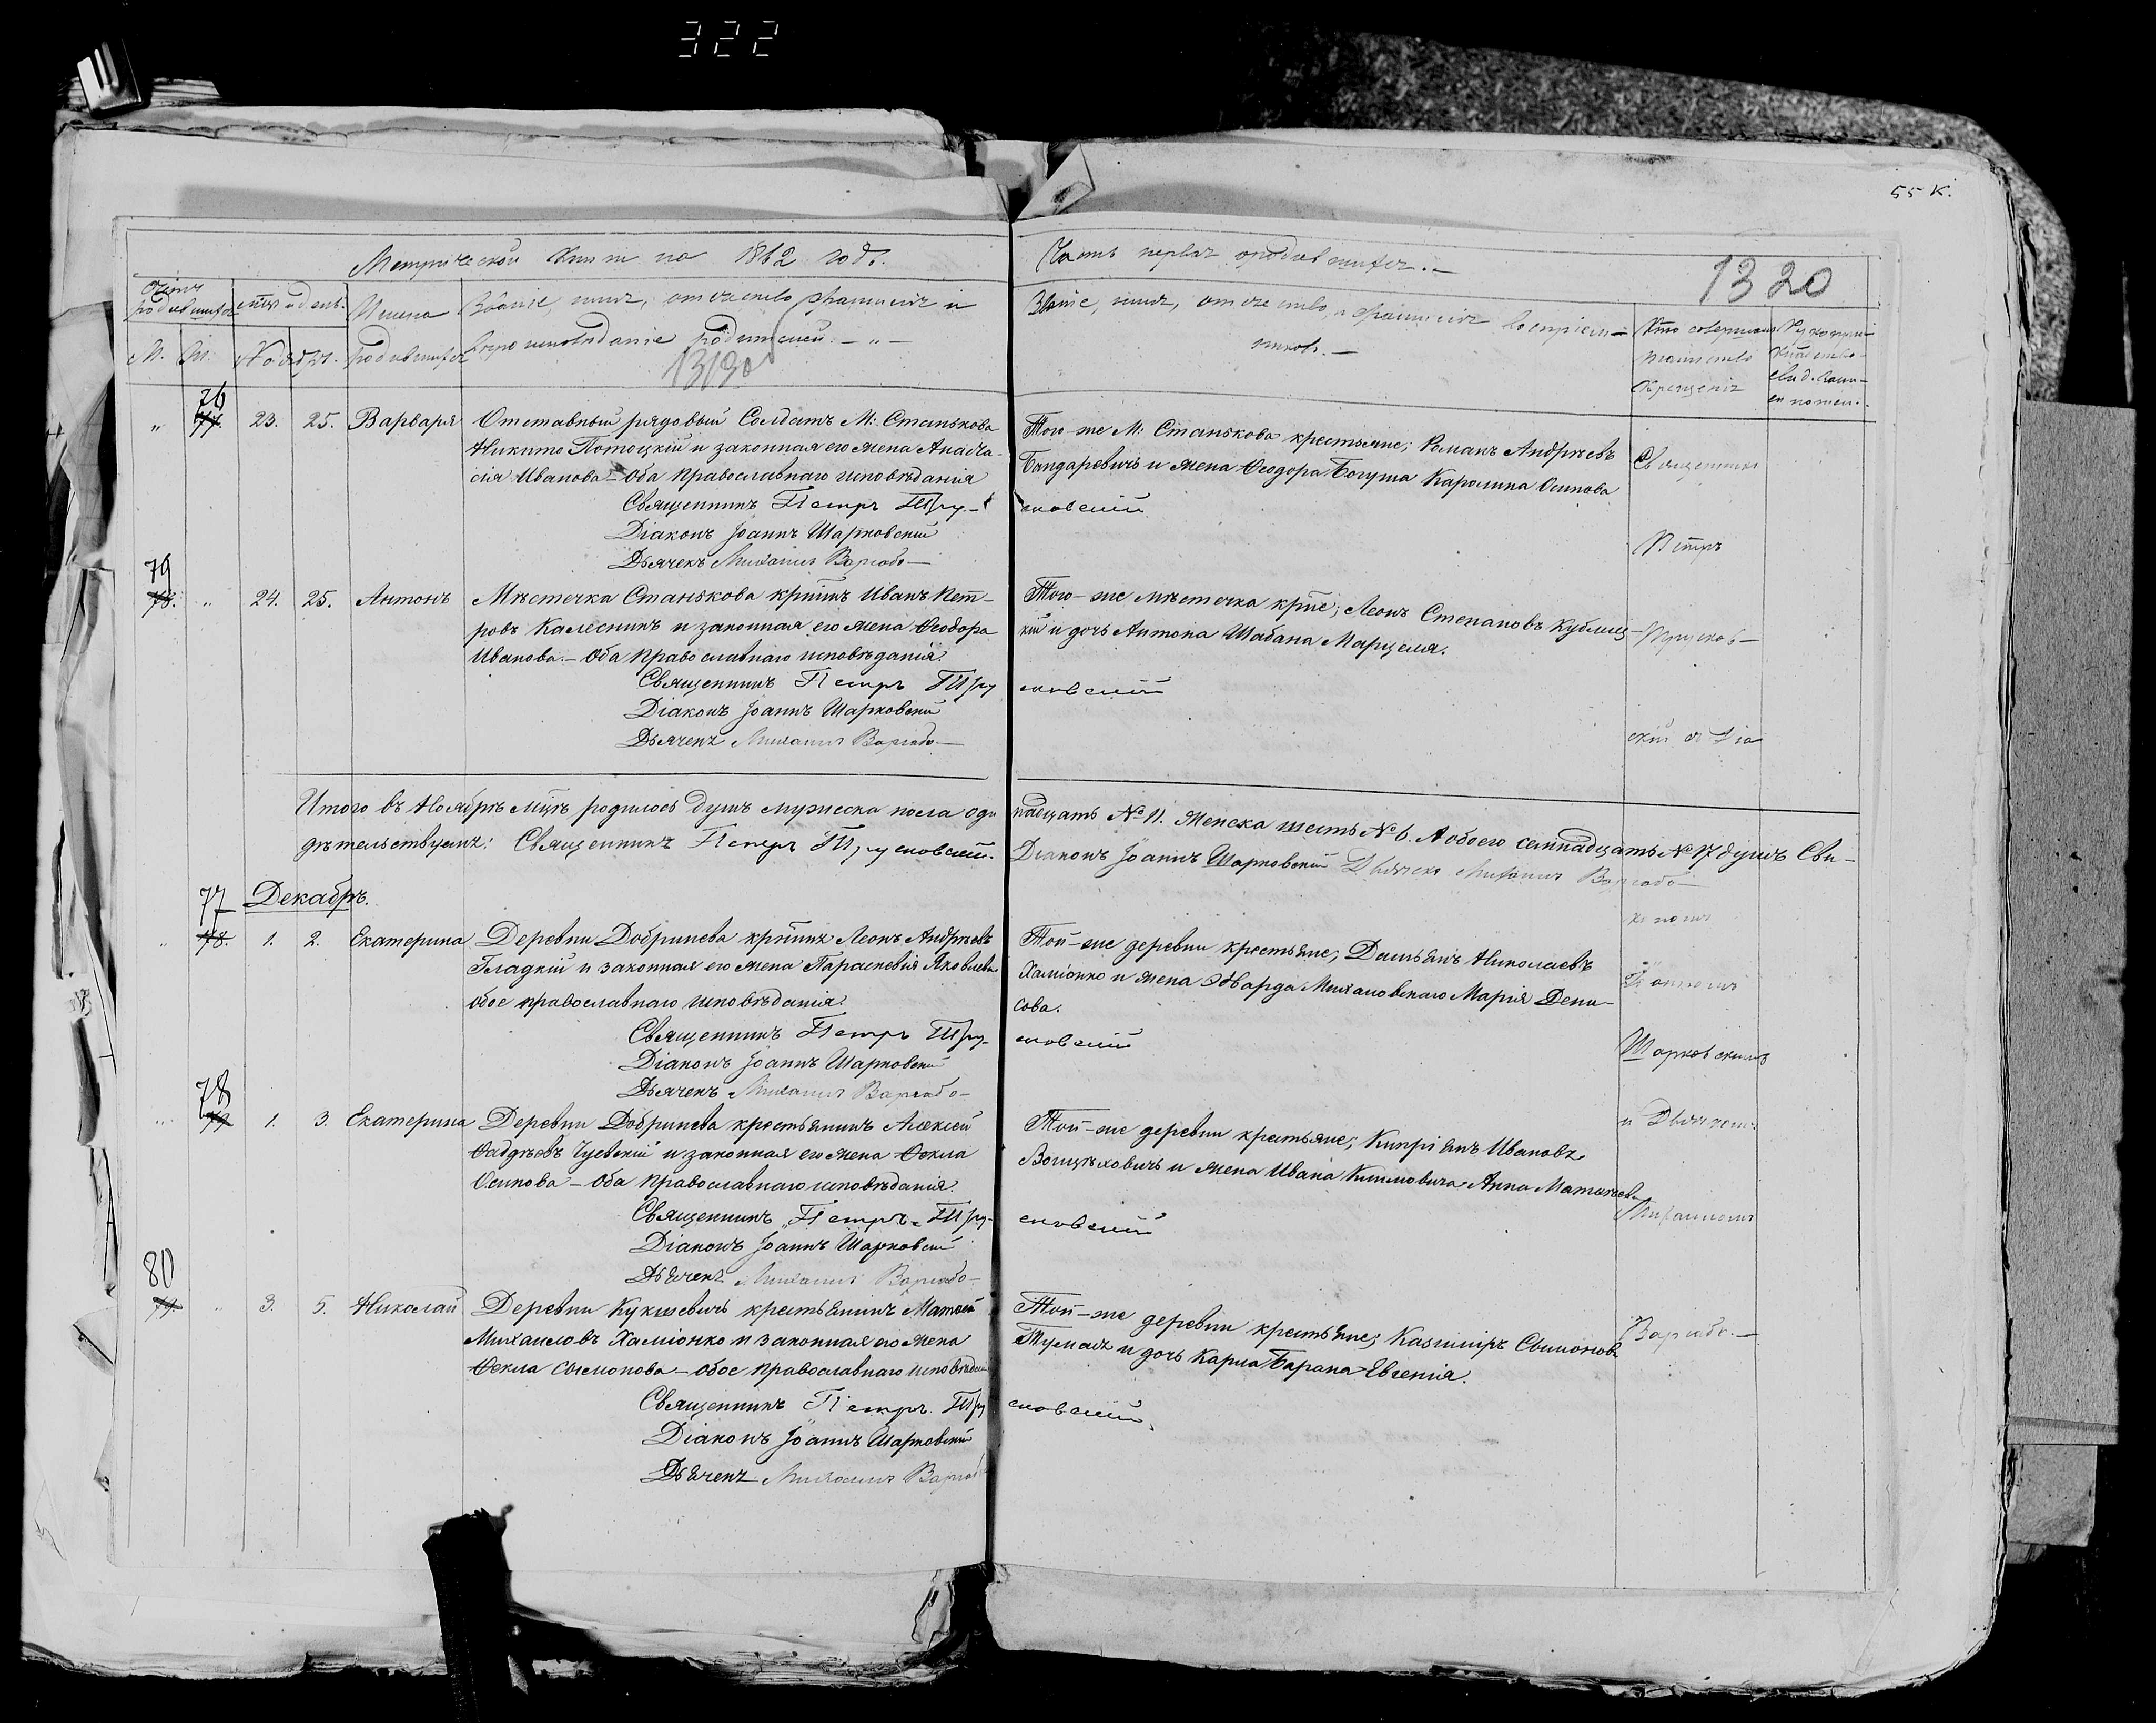 322
55 К.
Метрической книги на 1862 годъ.
Часть первая о родившихся.
1320
Счетъ родившихся
М. Ж.
Имена родившихся
Званіе, имя, отчество фамилія и
какого исповѣданія родителей.
1319об
Званіе, имя, отчество, и фамилія воспріем-
никовъ.
Кто совершалъ таинство крещенія
76
77. 23. 25. Варвара
Отставный рядовый Солдатъ М: Станькова
Никита Потоцкій и законная его жена Анаста-
сія Иванова - Оба Православнаго исповѣданія
Священникъ Петръ Тру-
сковскій
Діаконъ Іоаннъ Шарковскій
Дьячекъ Михаилъ
Того-же М: Станькова крестьяне; Романъ Андреевъ
Бандаревичъ и жена Ѳеодора Богуша Каролина Осипова
79
78. 24. 25. Антонъ
Мѣстечка Станькова кр͠нинъ Иванъ Пет-
ровъ Калесникъ и законная его жена Ѳеодора
Иванова. - Оба Православнаго исповѣданія.
Священникъ Петръ Тру
сковскій
Діаконъ Іоаннъ Шарковскій
Дьячекъ Михаилъ
Того-же мѣстечка кр͠не; Леонъ Степановъ Кублиц-
кій и дочь Антона Шабана Марцеля.
Итого въ Ноябрѣ мц͠ѣ родилось душъ мужеска пола оди
надцать № 11. Женска шесть № 6. А обоего семнадцать № 17 душъ Сви-
дѣтельствуемъ: Священникъ Петръ Трусковскій.
Діаконъ Іоаннъ Шарковскій Дьячекъ Михаилъ
Декабрь.
77
78. 1. 2. Екатерина
Деревни Добринева кр͠нинъ Леонъ Андреевъ
Гладкій и законная его жена Параскевія Яковлева
обое православнаго исповѣданія.
Священникъ Петръ Тру-
сковскій
Діаконъ Іоаннъ Шарковскій
Дьячекъ Михаилъ
Той-же деревни крестьяне; Дамьянъ Николаевъ
Халіонко и жена Эдварда Михаловскаго Марія Дени-
сова.
78
79 1. 3. Екатерина
Деревни Добринева крестьянинъ Алексей
Фадѣевъ Чуевскій и законная его жена Ѳекла
Осипова - Оба Православнаго исповѣданія.
Священникъ Петръ Тру-
сковскій
Діаконъ Іоаннъ Шарковскій
Дьячекъ Михаилъ
Той-же деревни крестьяне; Кипріянъ Ивановъ
Войцѣховичъ и жена Ивана Климовича Анна Матѳеева
80
79. 3. 5. Николай
Деревни Кукшевичъ крестьянинъ Матѳей
Михаиловъ Халіонко и законная его жена
Ѳекла Сымонова - обое Православнаго исповѣдан
Священникъ Петръ Тру
сковскій
Діаконъ Іоаннъ Шарковскій
Дьячекъ Михаилъ
Той-же деревни крестьяне; Казиміръ Сымоновъ
Тумашъ и дочь Карла Барана Евгенія.
Священникъ
Петръ
Трусков-
скій съ Діа
кономъ
Іоанномъ
Шарковскимъ
и Дьячкомъ
Михаиломъ